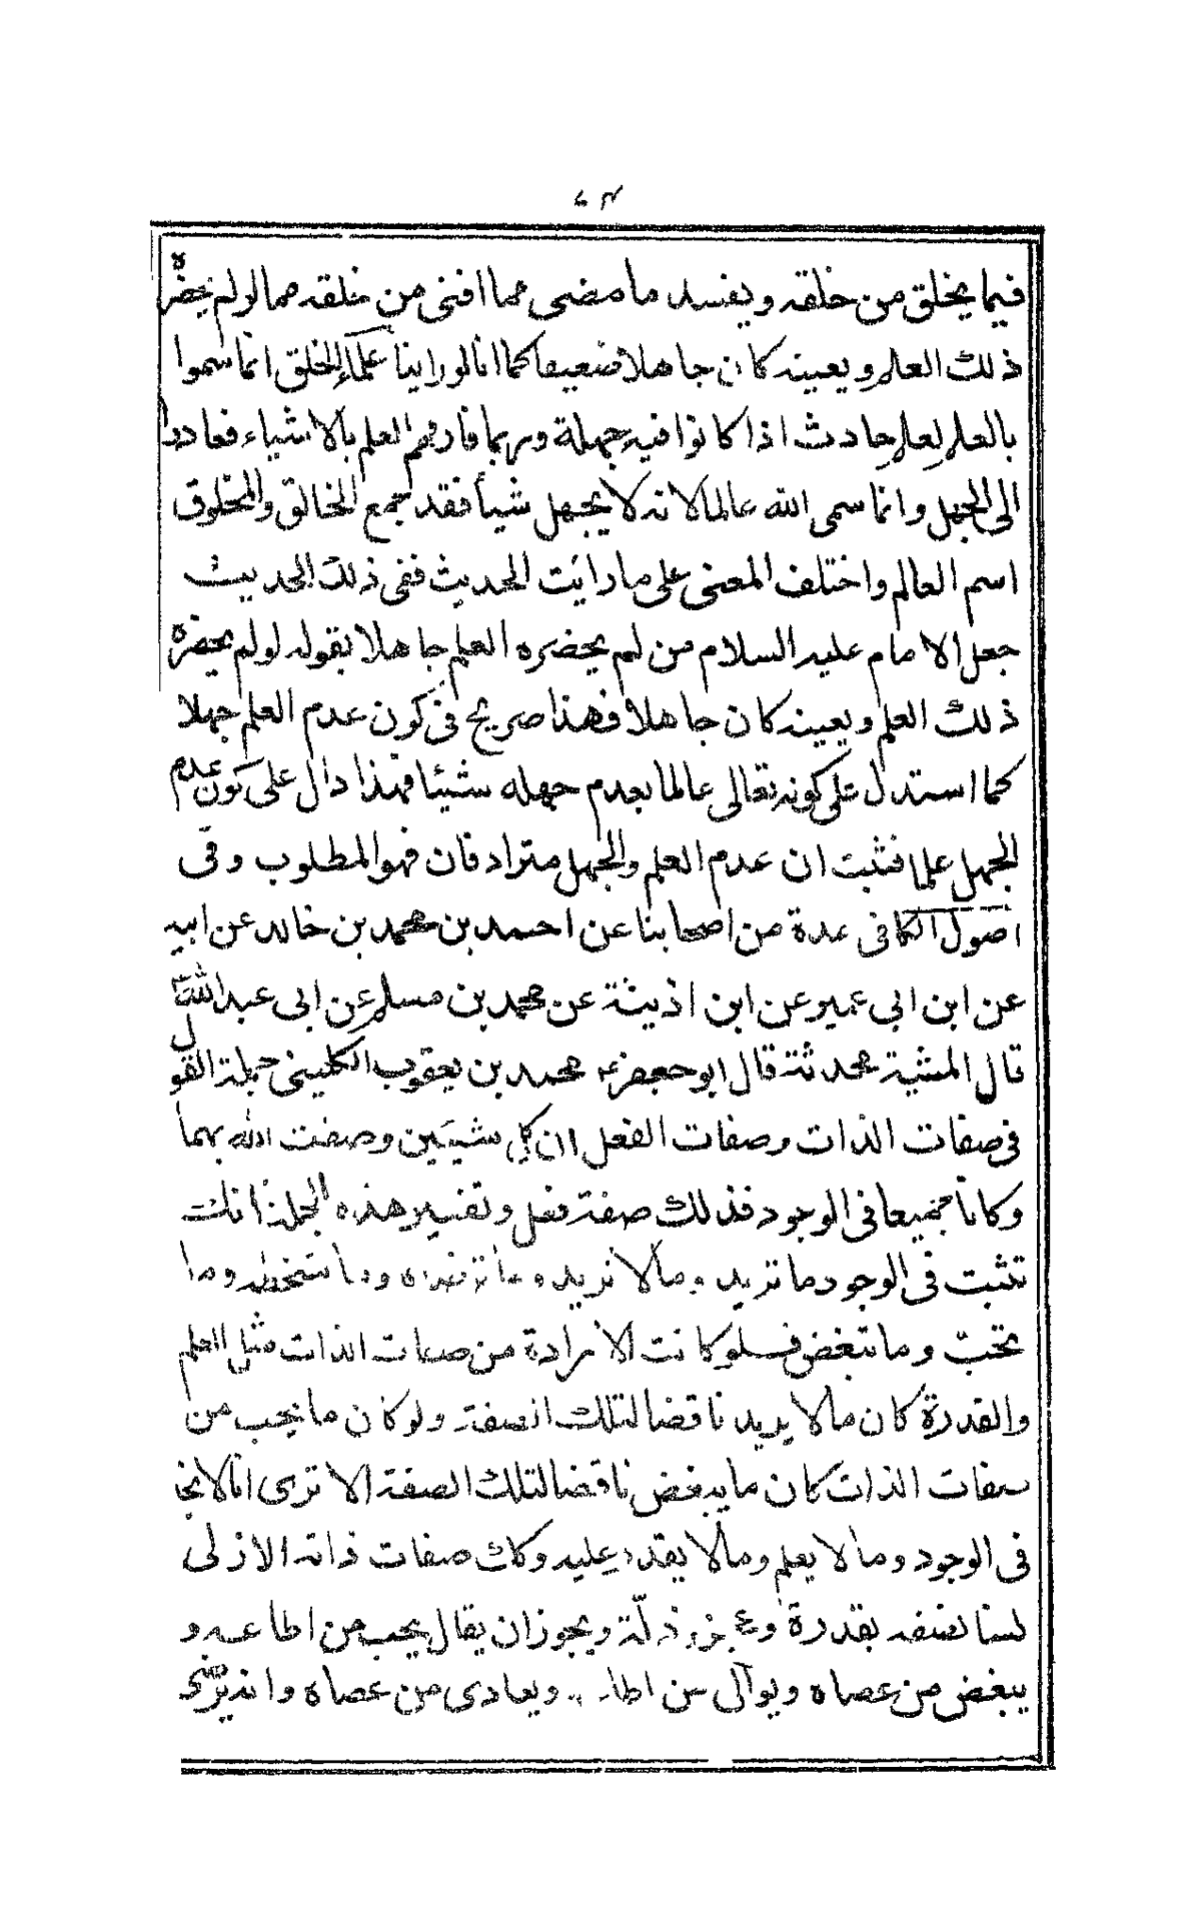 فيما يخلق من خلقه ويفسد ما مضى مما افنى من خلقه مما لو لم يحضره
ذلك العلم ويعينه كان جاهلا ضعيفا كما انا لو راينا علماء الخلق انما سموا
بالعلم لعلم حادث اذا كانوا فيه جهلة وربما فارقهم العلم بالاشياء فعادوا
الى الجهل وانما سمى الله عالما لانه لا يجهل شيأ فقد جمع الخالق والمخلوق
اسم العالم واختلف المعنى على ما رايت الحديث ففى ذلك الحديث
جعل الامام عليه السلام من لم يحضره العلم جاهلا بقوله لو لم يحضره
ذلك العلم ويعينه كان جاهلا فهذا صريح فى كون عدم العلم جهلا
كما استدل على كونه تعالى عالما بعدم جهله شيئا فهذا دال على كون عدم
الجهل علما فثبت ان عدم العلم والجهل مترادفان فهو المطلوب وفى
اصول الكافى عدة من اصحابنا عن احمد بن محمد بن خالد عن ابيه
عن ابن ابى عمير عن ابن اذينة عن محمد بن مسلم عن ابى عبد الله
قال المشية محدثة قال ابو جعفر محمد بن يعقوب الكلينى جملة القول
فى صفات الذات وصفات الفعل ان كل شيئين وصفت الله بهما
وكانا جميعا فى الوجود فذلك صفة فعل وتفسير هذه الجملة انك
تثبت فى الوجود ما تريد وما لا تريد وما ترضاه وما تسخطه وما
تحب وما تبغض فلو كانت الارادة من صفات الذات مثل العلم
والقدرة كان ما لا يريد ناقضا لتلك الصفة ولو كان ما يحب من
صفات الذات كان ما يبغض ناقضا لتلك الصفة الا ترى انا لا نجد
فى الوجود وما لا يعلم وما لا يقدر عليه وكك صفات ذاته الازلى
لسنا نصفه بقدرة وعجز وذلة ويجوز ان يقال يحب من اطاعه و
يبغض من عصاه ويوالى من اطاعه ويعادى من عصاه وانه يرضى